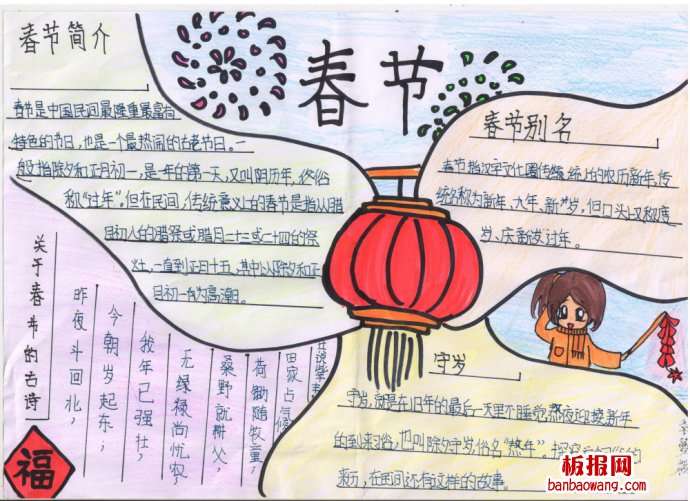 春节简介
春节是中国民间最隆重最富有
特色的节日，也是一个最热闹的古老节日。一
般指除夕和正月初一，是一年的第一天，又叫阴历年，俗
称“过年”。但在民间，传统意义上的春节是指从腊
月初八的腊祭或腊月二十三或二十四的祭
灶，一直到正月十五，其中以除夕和正
月初一为高潮。
春节
春节别名
春节指汉字文化圈传统上的农历新年，传
统名称为新年、大年、新岁，但口头上又称度
岁、庆新岁、过年。
关于春节的古诗
昨夜斗回北，
今朝岁起东；
我年已强壮，
无禄尚忧农。
桑野就耕父，
荷锄随牧童；
田家占气候，
福
守岁
守岁，就是在旧年的最后一天里不睡觉熬夜迎接新年
的到来习俗，也叫除夕守岁，俗名“熬年”。探究
来历，在民间还有这样的故事。
板报网
banbaowang.com